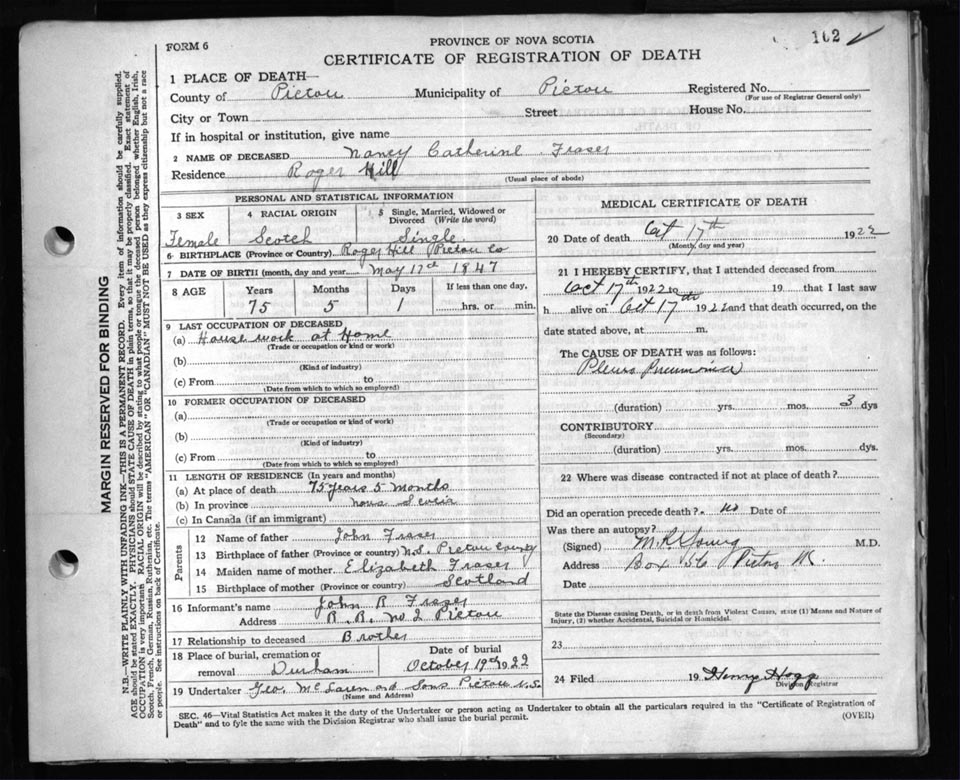 102 ✓
FORM 6
PROVINCE OF NOVA SCOTIA
CERTIFICATE OF REGISTRATION OF DEATH
1 PLACE OF DEATH—
County of Pictou Municipality of Pictou Registered No.
(For use of Registrar General only)
City or Town Street House No.
If in hospital or institution, give name
2 NAME OF DECEASED Nancy Catherine Fraser
Residence Roger Hill
(Usual place of abode)
PERSONAL AND STATISTICAL INFORMATION
3 SEX 4 RACIAL ORIGIN 5 Single, Married, Widowed or
Divorced (Write the word)
Female Scotch Single
6 BIRTHPLACE (Province or Country) Roger Hill Pictou Co
7 DATE OF BIRTH (month, day and year) May 17th 1847
8 AGE Years Months Days If less than one day,
75 5 1 hrs. or min.
9 LAST OCCUPATION OF DECEASED
(a) House work at Home
(Trade or occupation or kind or work)
(b)
(Kind of industry)
(c) From to
(Date from which to which so employed)
10 FORMER OCCUPATION OF DECEASED
(a)
(Trade or occupation or kind of work)
(b)
(Kind of industry)
(c) From to
(Date from which to which so employed)
11 LENGTH OF RESIDENCE (In years and months)
(a) At place of death 75 years 5 months
(b) In province nova Scotia
(c) In Canada (if an immigrant)
Parents
12 Name of father John Fraser
13 Birthplace of father (Province or country) N.S. Pictou County
14 Maiden name of mother Elizabeth Fraser
15 Birthplace of mother (Province or country) Scotland
16 Informant's name John R Fraser
Address R. R. No 2 Pictou
17 Relationship to deceased Brother
18 Place of burial, cremation or Date of burial
removal Durham October 19th 1922
19 Undertaker Geo. McLaren and Sons Pictou N.S.
(Name and Address)
MEDICAL CERTIFICATE OF DEATH
20 Date of death Oct 17th 1922
(Month, day and year)
21 I HEREBY CERTIFY, that I attended deceased from
Oct 17th 1922 to 19 that I last saw
h alive on Oct 17th 1922 and that death occurred, on the
date stated above, at m.
The CAUSE OF DEATH was as follows:
Pleuro Pneumonia
(duration) yrs. mos. 3 dys
CONTRIBUTORY
(Secondary)
(duration) yrs. mos. dys.
22 Where was disease contracted if not at place of death?
Did an operation precede death? no Date of
Was there an autopsy?
(Signed) M R Young M.D.
Address Box 56 Pictou
Date
State the Disease causing Death, or in death from Violent Causes, state (1) Means and Nature of
Injury, (2) whether Accidental, Suicidal or Homicidal.
23
24 Filed 19 Henry Hogg
Division Registrar
SEC. 46—Vital Statistics Act makes it the duty of the Undertaker or person acting as Undertaker to obtain all the particulars required in the "Certificate of Registration of
Death" and to fyle the same with the Division Registrar who shall issue the burial permit.
(OVER)
MARGIN RESERVED FOR BINDING
N.B.—WRITE PLAINLY WITH UNFADING INK—THIS IS A PERMANENT RECORD. Every item of information should be carefully supplied.
AGE should be stated EXACTLY. PHYSICIANS should STATE CAUSE OF DEATH in plain terms, so that it may be properly classified. Exact statement of
OCCUPATION is very important. RACIAL ORIGIN will be described by stating to what people or tongue the deceased person belonged whether English, Irish,
Scotch, French, German, Russian, Ruthenian, etc. The terms "AMERICAN" OR "CANADIAN" MUST NOT BE USED as they express citizenship but not a race
or people. See instructions on back of Certificate.